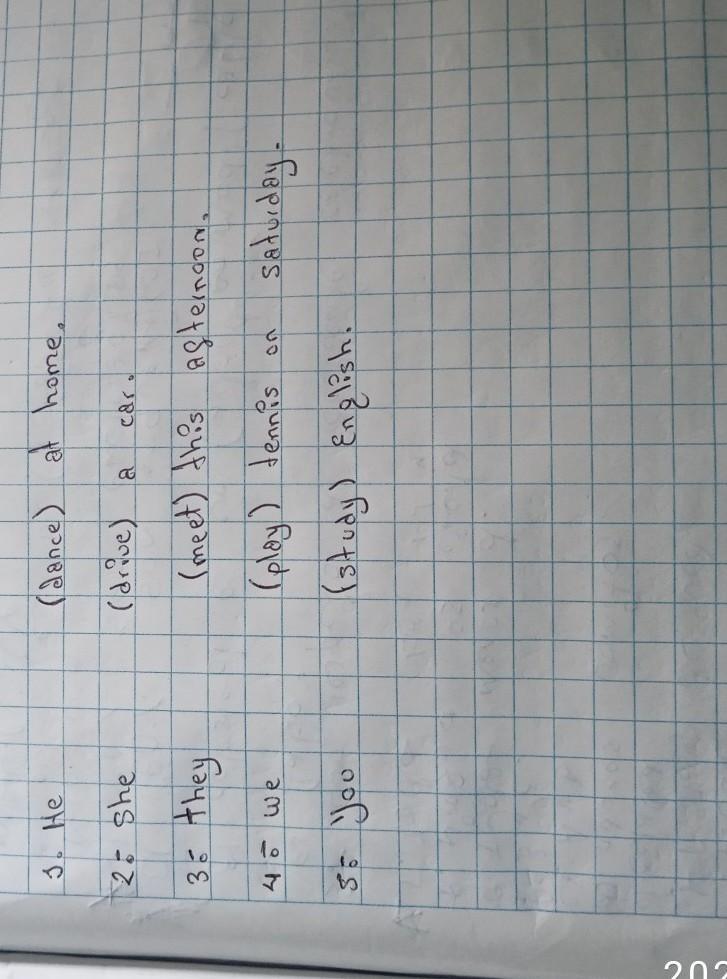 1. He (dance) at home.
2: She (drive) a car.
3: they (meet) this afternoon.
4: we (play) tennis on saturday.
5: You (study) English.
202